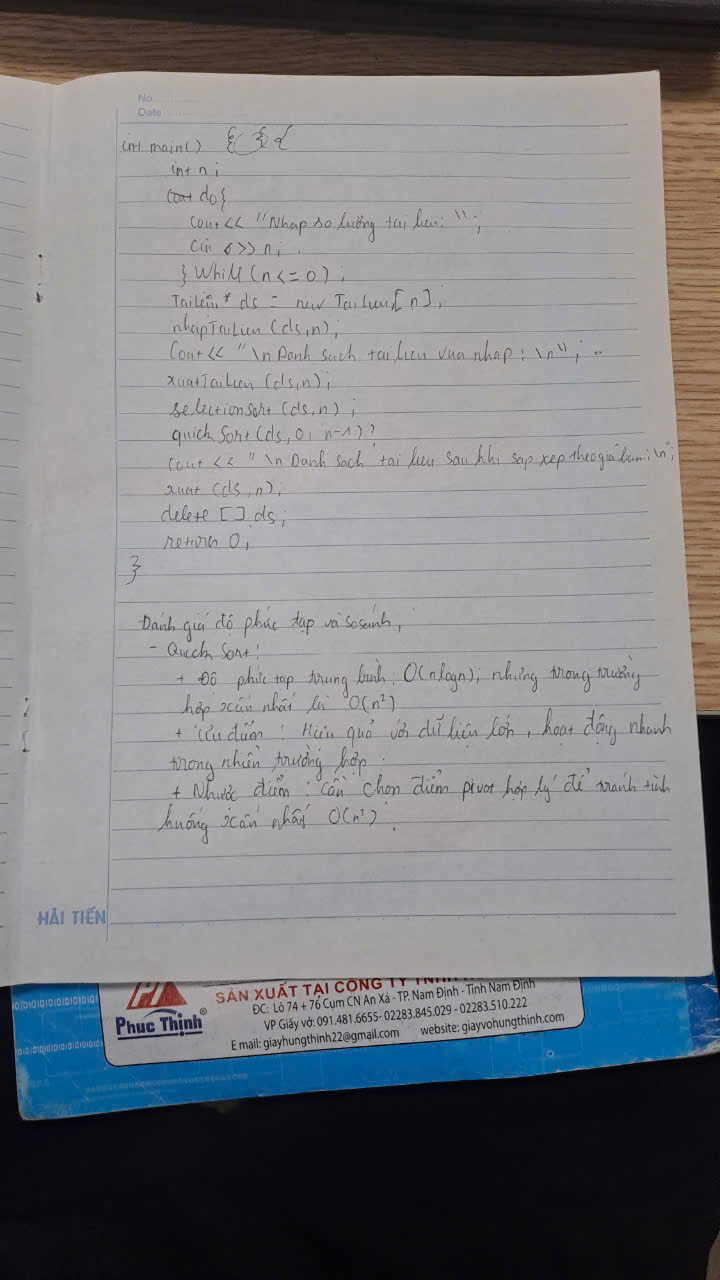 No
Date
int main() {
int n;
do{
Cout<< "Nhap so lường tai lieu: ";
Cin >> n;
} While (n<=0);
TaiLieu* ds = new TaiLieu[n];
nhapTaiLieu (ds,n);
Cout<< "\n Danh sach tai lieu vua nhap: \n";
xuatTaiLieu (ds,n);
selectionSort (ds,n);
quickSort (ds, 0, n-1);
Cout << "\n Danh sach tai lieu sau khi sap xep theo gia ban: \n";
xuat (ds,n);
delete [] ds;
return 0;
}
Đánh giá độ phức tạp và so sánh,
- Quick Sort:
+ Độ phức tạp trung bình: O(nlogn); nhưng trong trường
hợp xấu nhất là O(n²)
+ Ưu điểm: Hiệu quả với dữ liệu lớn, hoạt động nhanh
trong nhiều trường hợp.
+ Nhược điểm: cần chọn điểm pivot hợp lý để tránh tình
huống xấu nhất O(n²)
HẢI TIẾN
SẢN XUẤT TẠI CÔNG TY TNHH
Phuc Thịnh®
ĐC: Lô 74 + 76 Cụm CN An Xá - TP. Nam Định - Tỉnh Nam Định
VP Giấy vở: 091.481.6655- 02283.845.029 - 02283.510.222
E mail: giayhungthinh22@gmail.com website: giayvohungthinh.com